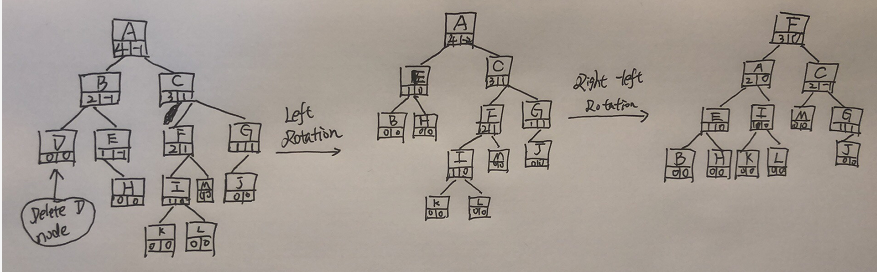 A
4 -1
B
2 -1
C
3 1
D
0 0
E
1 -1
F
2 1
G
1 1
H
0 0
I
1 0
M
J
0 0
K
0 0
L
0 0
Delete D
node
Left
Rotation
A
4 -2
E
1 0
C
3 1
B
0 0
H
0 0
F
2 1
G
1 1
I
1 0
M
J
0 0
K
0 0
L
0 0
Right-left
Rotation
F
3
A
2 0
C
2 -1
E
1 0
I
M
0 0
G
1 1
B
0 0
H
0 0
K
0 0
L
0 0
J
0 0